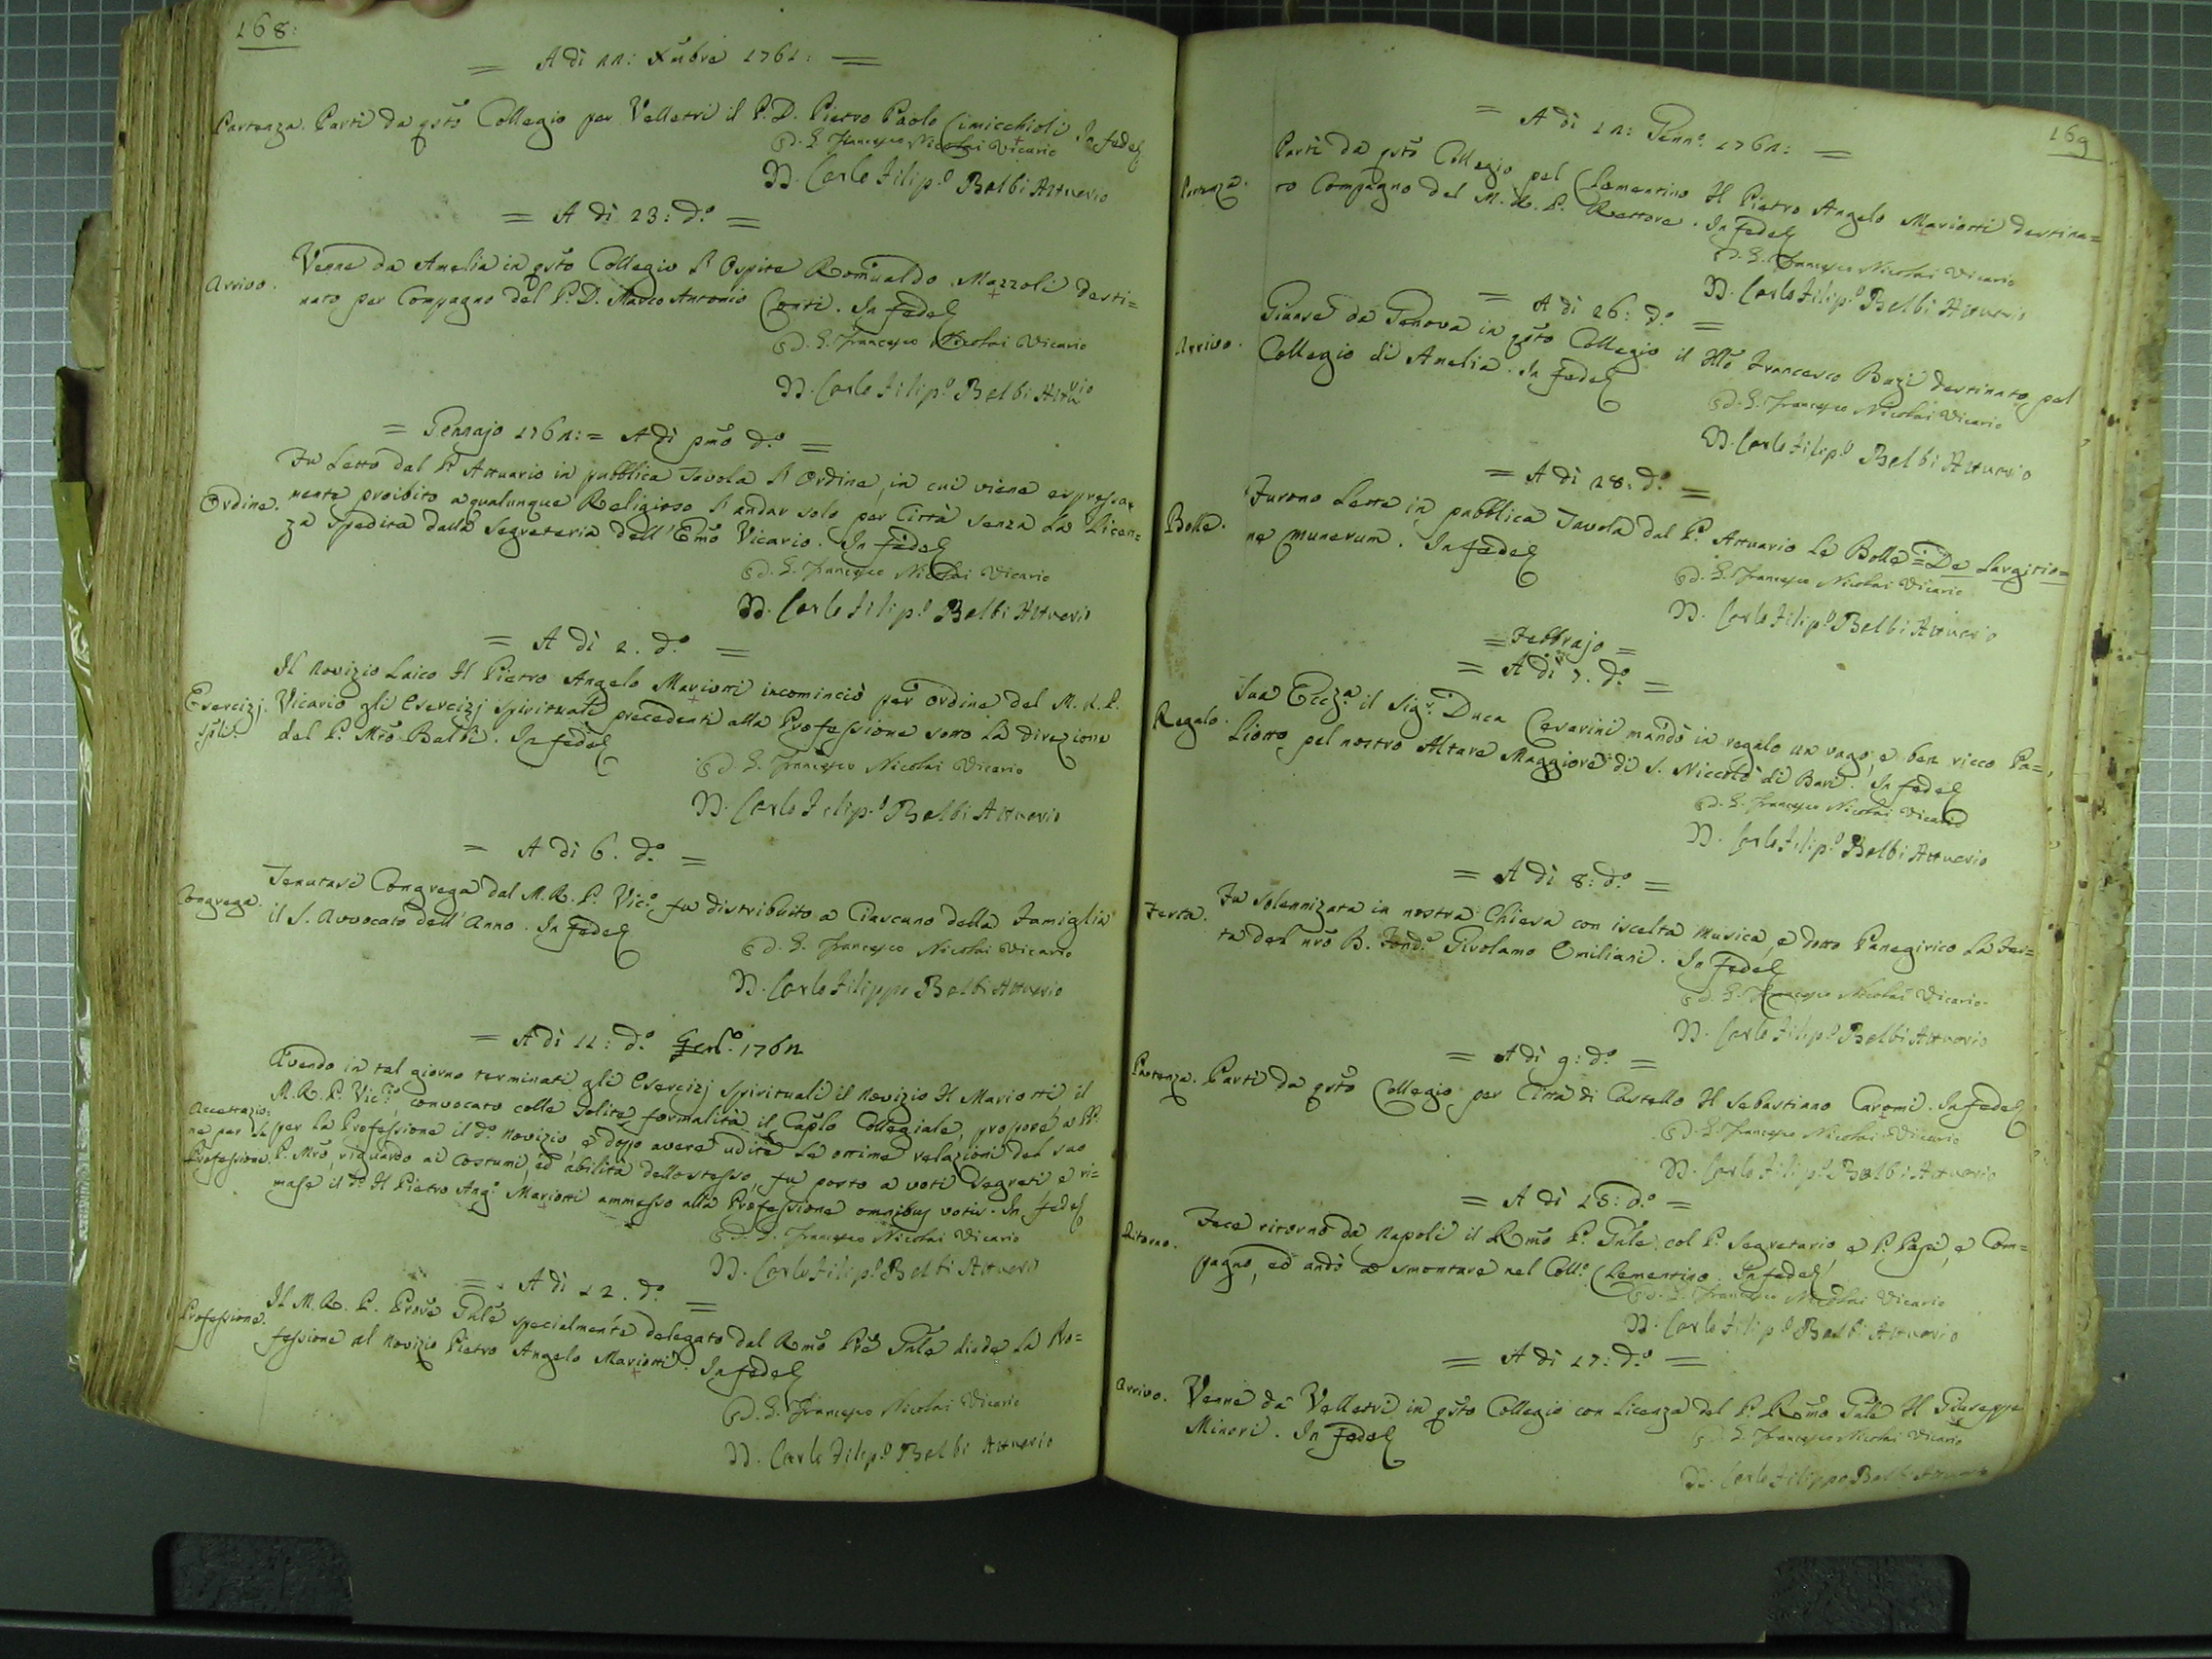 168:
= A dì 22: Xmbre 1761: =
Partenza. Partì da qsto Collegio per Velletri il P. D. Pietro Paolo Cimicchioli In fede
D. G. Francesco Nicolai Vicario
D. Carlo Filip.o Balbi Attuario
= A dì 23: d.o =
Arrivo. Venne da Amelia in qsto Collegio l'Ospite Romualdo Mazzoli desti=
nato per Compagno del P. D. Marco Antonio Conti. In fede
D. G. Francesco Nicolai Vicario
D. Carlo Filip.o Balbi Attuario
= Gennajo 1762: = A dì pmo d.o =
Fu Letto dal P. Attuario in pubblica Tavola l'Ordine, in cui viene espressa=
Ordine. mente proibito a qualunque Religioso l'andar solo per Città senza La Licen=
za spedita dalla Segreteria dell'Emo Vicario. In fede
D. G. Francesco Nicolai Vicario
D. Carlo Filip.o Balbi Attuario
= A dì 2. d.o =
Il Novizio Laico H Pietro Angelo Mariotti incominciò per ordine del M. R. P.
Esercizj Vicario gli Esercizj Spirituali precedenti alla Professione sotto La direzione
spli. del P. Mro Balbi. In fede
D. G. Francesco Nicolai Vicario
D. Carlo Filip.o Balbi Attuario
= A dì 6. d.o =
Congrega. Tenutasi Congrega dal M. R. P. Vic.o fu distribuito a Ciascuno della Famiglia
il S. Avvocato dell'Anno. In fede
D. G. Francesco Nicolai Vicario
D. Carlo Filippo Balbi Attuario
= A dì 11: d.o Gen.o 1762
Avendo in tal giorno terminati gli Esercizj Spirituali il Novizio H Mariotti il
M. R. P. Vic.o, convocato colle solite formalità il Caplo Collegiale, propose a PP.
Accettazio= ne per la Professione. per La Professione il d.o Novizio, e doppo avere udite Le ottime relazioni del suo
P. Mro, riguardo ai Costumi, ed abilità dello stesso, fu posto a voti segreti e ri=
mase il d.o H Pietro Ang.o Mariotti ammesso alla Professione omnibus votis. In fede
D. G. Francesco Nicolai Vicario
D. Carlo Filip.o Balbi Attuario
= A dì 12. d.o =
Professione. Il M. R. P. Prove Gnle specialmente delegato dal Rmo Pre Gnle diede La Pro=
fessione al Novizio Pietro Angelo Mariotti. In fede
D. G. Francesco Nicolai Vicario
D. Carlo Filip.o Balbi Attuario
169
= A dì 12: Genn.o 1762: =
Partenza. Partì da qsto Collegio pel Clementino H Pietro Angelo Mariotti destina=
to Compagno del M. R. P. Rettore. In fede
D. G. Francesco Nicolai Vicario
D. Carlo Filip.o Balbi Attuario
= A dì 26: d.o =
Arrivo. Giunse da Genova in qsto Collegio il Hllo Francesco Bugi destinato pel
Collegio di Amelia. In fede
D. G. Francesco Nicolai Vicario
D. Carlo Filip.o Balbi Attuario
= A dì 28: d.o =
Bolle. Furono Lette in pubblica Tavola dal P. Attuario Le Bolle = De Largitio=
ne munerum. In fede
D. G. Francesco Nicolai Vicario
D. Carlo Filip.o Balbi Attuario
= Febbrajo =
= A dì 7. d.o =
Regalo. Sua Eccza il Sig.r Duca Cesarini mandò in regalo un vago, e ben ricco Pa=
liotto pel nostro Altare Maggiore di S. Niccolò di Bari. In fede
D. G. Francesco Nicolai Vicario
D. Carlo Filip.o Balbi Attuario
= A dì 8: d.o =
Festa. Fu solennizata in nostra Chiesa con iscelta Musica, e dotto Panegirico La Fes=
ta del nro B. Fond.e Girolamo Emiliani. In fede
D. G. Francesco Nicolai Vicario
D. Carlo Filip.o Balbi Attuario
= A dì 9: d.o =
Partenza. Partì da qsto Collegio per Città di Castello H Sebastiano Caromi. In fede
D. G. Francesco Nicolai Vicario
D. Carlo Filip.o Balbi Attuario
= A dì 15: d.o =
Ritorno. Fece ritorno da Napoli il Rmo P. Gnle col P. Segretario, e P. Papi, e Com=
pagno, ed andò a smontare nel Coll.o Clementino. In fede
D. G. Francesco Nicolai Vicario
D. Carlo Filip.o Balbi Attuario
= A dì 17: d.o =
Arrivo. Venne da Velletri in qsto Collegio con Licenza del P. Rmo Gnle H Giuseppe
Minori. In fede
D. G. Francesco Nicolai Vicario
D. Carlo Filippo Balbi Attuario